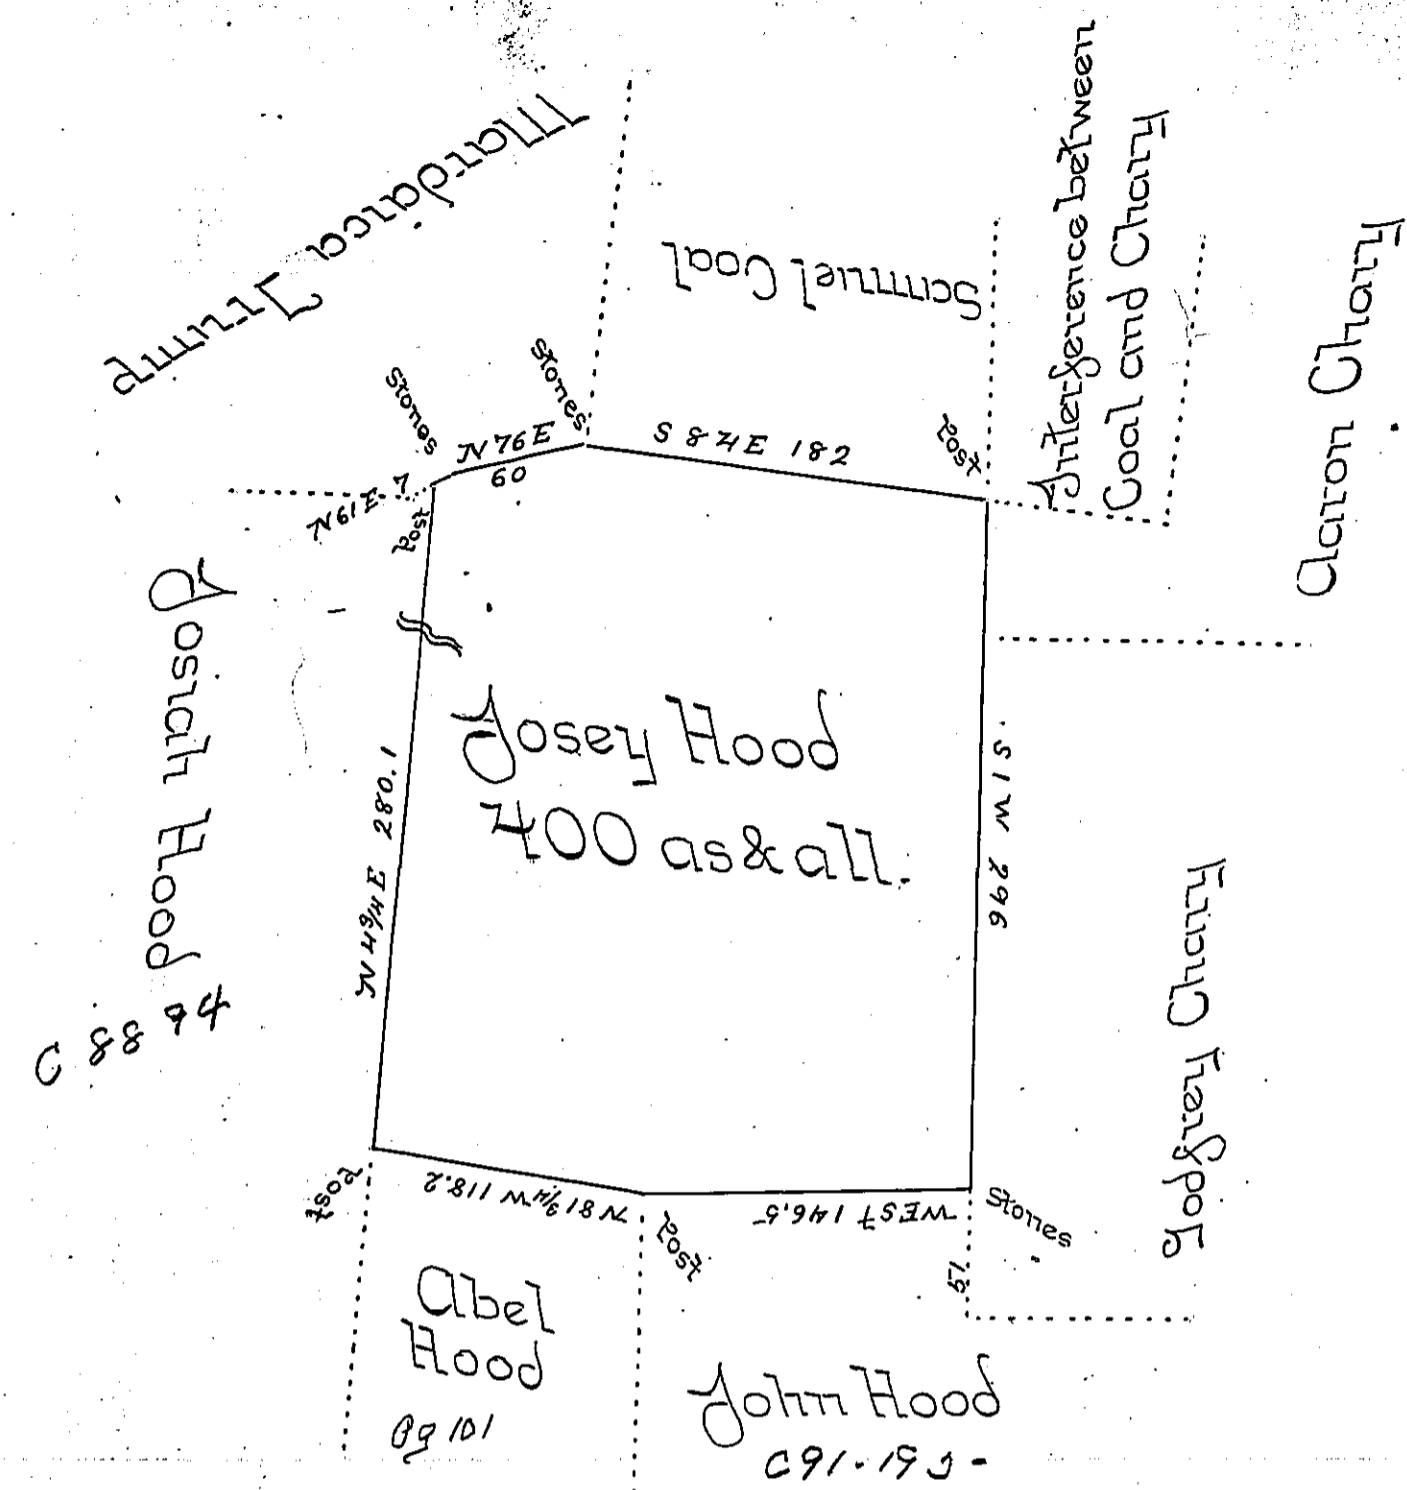 Mardaica Trump
Samuel Coal
Interference between
Coal and Chary
Aaron Chary
stones
stones
N 76 E
60
S 84 E 182
Post
N 61 E 7
Post
Josiah Hood
C 88 94
N 4 3/4 E 280.1
Josey Hood
400 as & all.
S 1 W 296
Godfrey Chary
Post
N 81 3/4 W 118.2
Post
WEST 146.5
Stones
Abel
Hood
Pg 101
John Hood